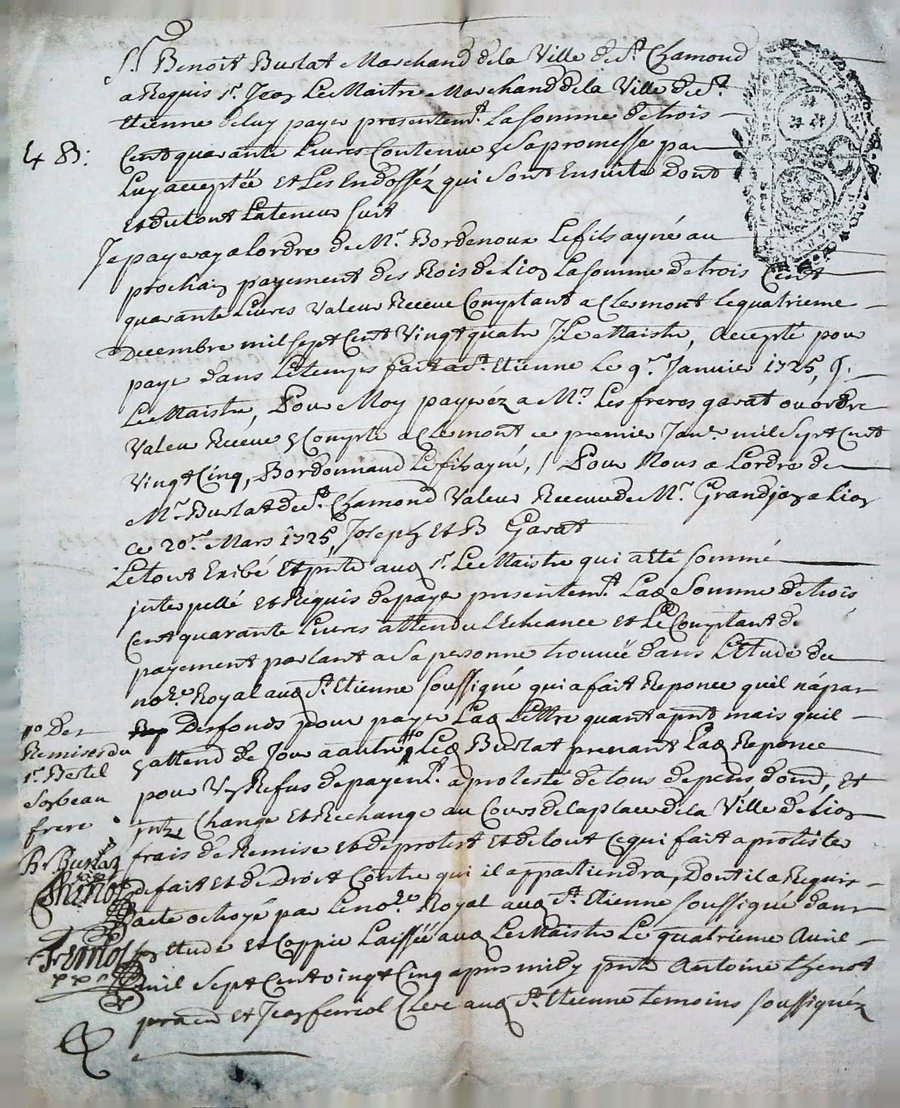 Sr. Benoit Burlat Marchand de la Ville de St. Chamond
a Requis sr. Jean Le Maitre Marchand de la Ville de St.
Etienne de luy payer presentemt. La somme de trois
Cent quarante Livres Contenue sa promesse par
Luy acceptée et Les Endossez qui sont Ensuite dont
et du tout La teneur suit
Je payeray a lordre de Mr. Bordenoux Le fils ayné au
prochain payement des Rois de Lion La somme de trois Cent
quarante Livres Valeur Receue Comptant a Clermont le quatrieme
Decembre mil sept Cent Vingt quatre J: Le Maistre, Accepté pour
payé dans Le temps fait a St. Etienne Le 9e. Janvier 1725, J.
Le Maistre, Pour Moy payeréz a Mrs Les freres garat ou ordre
Valeur Receue Compte a Clermont ce premier Janv. mil sept Cent
Vingt Cinq, Bordonnaud Le fils ayné, / Pour Nous a Lordre de
Mr. Burlat de St. Chamond Valeur Receue de Mr. Grandjean a Lion
ce 20e. Mars 1725, Joseph et B Garat
Le tout Exibé et pnté aud sr. Le Maistre qui a été sommé
interpellé et Requis de payer presentemt. Lad Somme de trois
Cent quarante Livres attendu Lecheance et Le Comptant de
payement parlant a sa personne trouvée dans L'Etude du
nore. Royal aud St. Etienne soussigné qui a fait Reponce quil na par
Des fonds pour payer Lad Lettre quant a pnt mais quil
sattend de Jour a autre Led Burlat prenant Lad Reponce
pour Vn Refus de payemt. a protesté de tous depens domd, et
intz, Change et Rechange au Cours de la place de la Ville de Lion
frais de Remise et de protest et de tout Ce qui fait a protester
de fait et de Droit Contre qui il appartiendra, Dont il a Requis
acte octroyé par le nore. Royal aud St. Etienne soussigné dans
son Etude et Coppie Laissée aud Le Maistre Le quatrieme Avril
mil sept Cent vingt Cinq apres midy pnts Antoine thenot
pratn et Jean ferriol Clerc aud St. Etienne temoins soussignéz
4 s:
no Des
Remises du
sr. Bertel
Sorbeau
frere
Bt Burlat
Thenot